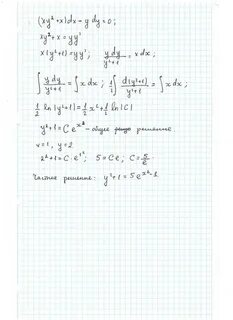 (xy²+x)dx - y dy = 0;
xy²+x = yy'
x(y²+1) = yy'; y dy/(y²+1) = x dx;
∫ y dy/(y²+1) = ∫ x dx; 1/2 ∫ d(y²+1)/(y²+1) = ∫ x dx;
1/2 ln|y²+1| = 1/2 x² + 1/2 ln|C|
y²+1 = C e^(x²) - общее решение
x=1, y=2
2²+1 = C·e^(1²); 5 = Ce; C = 5/e
Частное решение: y²+1 = 5e^(x²-1)